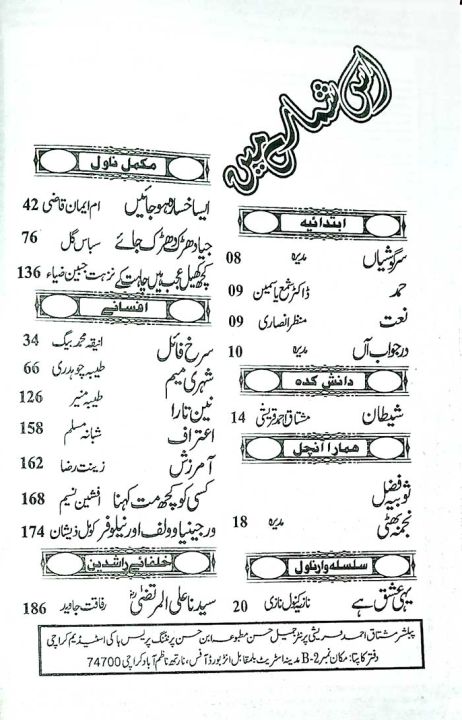 اس شمارے میں
ابتدائیہ
سرگوشیاں مدیرہ 08
حمد ڈاکٹر شمع یاسمین 09
نعت منظر انصاری 09
درجواب آں مدیرہ 10
دانش کدہ
شیطان مشتاق احمد قریشی 14
ھمارا آنچل
ثوبیہ فضل
نجمہ بھٹی مدیرہ 18
سلسلہ وار ناول
یہی عشق ہے نازیہ کنول نازی 20
مکمل ناول
ایسا خسارہ ہو جائیں ام ایمان قاضی 42
جیا دھڑک دھڑک جائے سباس گل 76
کچھ کھیل عجب ہیں چاہت کے نزہت جبین ضیاء 136
افسانے
سرخ فائل انیقہ محمد بیگ 34
شہری میم طیبہ چوہدری 66
نین تارا طیبہ منیر 126
اعتراف شبانہ مسلم 158
آمرزش زینت رضا 162
کسی کو کچھ مت کہنا افشین نسیم 168
ورجینیا وولف اور نیلوفر کومل ذیشان 174
خلفائے راشدین
سیدنا علی المرتضیٰؓ رفاقت جاوید 186
پبلشر مشتاق احمد قریشی پرنٹر جمیل حسن مطبوعہ ابن حسن پرنٹنگ پریس ہاکی اسٹیڈیم کراچی
دفتر کا پتا: مکان نمبر B-2 مدینہ اسٹریٹ بلمقابل انڑ بورڈ آفس، نارتھ ناظم آباد کراچی 74700